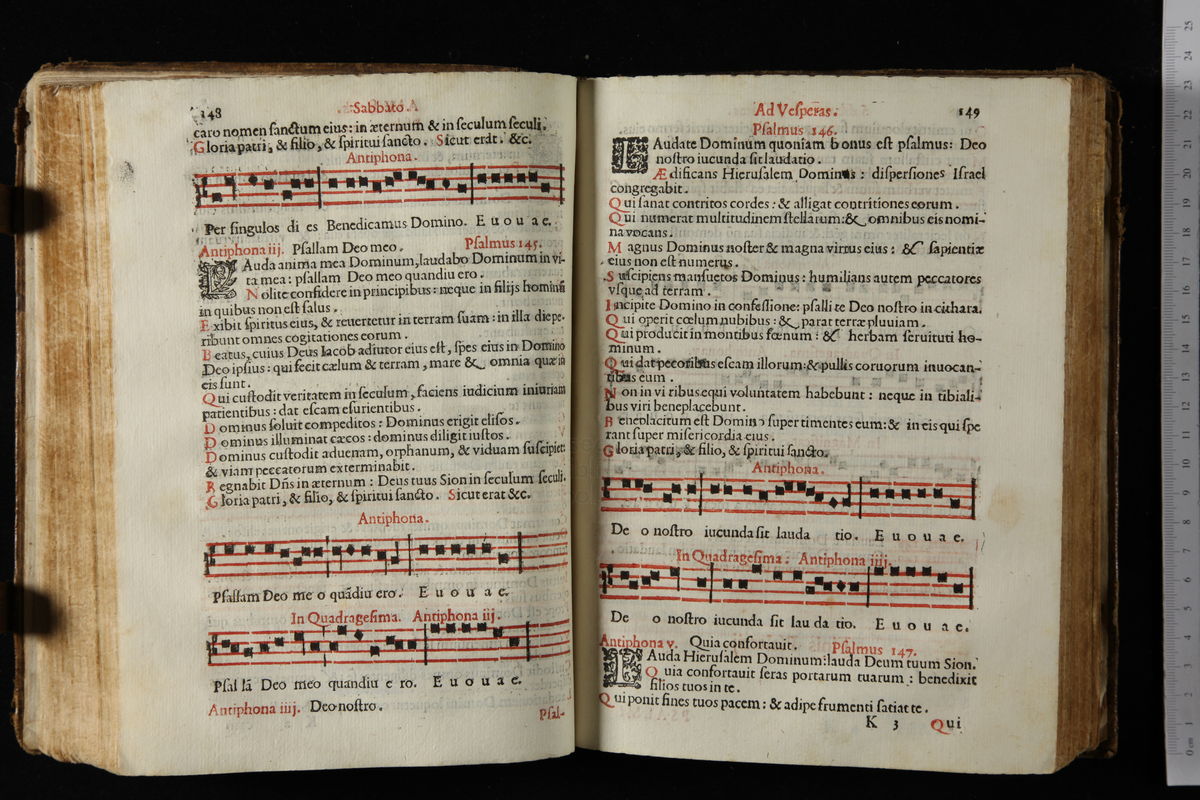 148
Sabbato.
caro nomen sanctum eius: in æternum & in seculum seculi.
Gloria patri, & filio, & spiritui sancto. Sicut erat. &c.
Antiphona.
Per singulos di es Benedicamus Domino. E u o u a e.
Antiphona iij. Psallam Deo meo. Psalmus 145.
LAuda anima mea Dominum, laudabo Dominum in vi-
ta mea: psallam Deo meo quandiu ero.
Nolite confidere in principibus: neque in filijs hominũ
in quibus non est salus.
Exibit spiritus eius, & reuertetur in terram suam: in illa die pe.
ribunt omnes cogitationes eorum.
Beatus, cuius Deus Iacob adiutor eius est, spes eius in Domino
Deo ipsius: qui fecit cælum & terram, mare & omnia quæ in
eis sunt.
Qui custodit veritatem in seculum, faciens iudicium iniuriam
patientibus: dat escam esurientibus.
Dominus soluit compeditos: Dominus erigit elisos.
Dominus illuminat cæcos: dominus diligit iustos.
Dominus custodit aduenam, orphanum, & viduam suscipiet:
& viam peccatorum exterminabit.
Regnabit Dñs in æternum: Deus tuus Sion in seculum seculi.
Gloria patri, & filio, & spiritui sancto. Sicut erat &c.
Antiphona.
Psallam Deo me o quãdiu ero. E u o u a e.
In Quadragesima. Antiphona iij.
Psal lã Deo meo quandiu e ro. E u o u a e.
Antiphona iiij. Deo nostro.
Psal-
Ad Vesperas.
149
Psalmus 146.
LAudate Dominum quoniam bonus est psalmus: Deo
nostro iucunda sit laudatio.
Ædificans Hierusalem Dominus: dispersiones Israel
congregabit.
Qui sanat contritos cordes: & alligat contritiones eorum.
Qui numerat multitudinem stellarum: & omnibus eis nomi-
na vocans.
Magnus Dominus noster & magna virtus eius: & sapientiæ
eius non est numerus.
Suscipiens mansuetos Dominus: humilians autem peccatores
vsque ad terram.
Incipite Domino in confessione: psalli te Deo nostro in cithara.
Qui operit cœlum nubibus: & parat terræ pluuiam.
Qui producit in montibus fœnum: & herbam seruituti ho-
minum.
Qui dat pecoribus escam illorum: & pullis coruorum inuocan-
tibus eum.
Non in vi ribus equi voluntatem habebunt: neque in tibiali-
bus viri beneplacebunt.
Beneplacitum est Domino super timentes eum: & in eis qui spe
rant super misericordia eius.
Gloria patri, & filio, & spiritui sancto.
Antiphona.
De o nostro iucunda sit lauda tio. E u o u a e.
In Quadragesima. Antiphona iiij.
De o nostro iucunda sit lau da tio. E u o u a e.
Antiphona v. Quia confortauit. Psalmus 147.
LAuda Hierusalem Dominum: lauda Deum tuum Sion.
Quia confortauit seras portarum tuarum: benedixit
filios tuos in te.
Qui ponit fines tuos pacem: & adipe frumenti satiat te.
K 3
Qui